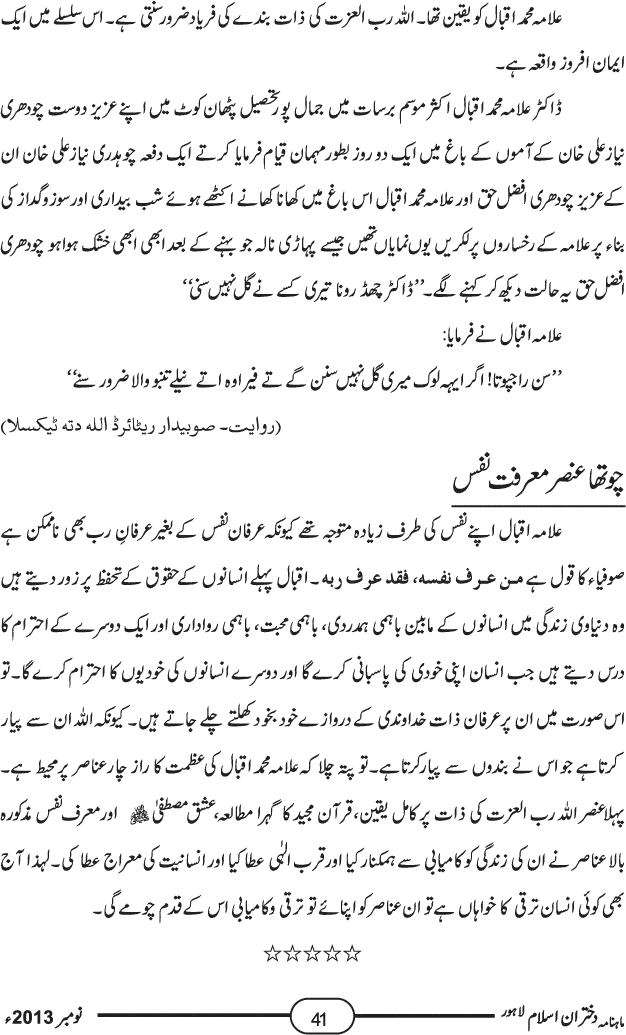 علامہ محمد اقبال کو یقین تھا۔ اللہ رب العزت کی ذات بندے کی فریاد ضرور سنتی ہے۔ اس سلسلے میں ایک
ایمان افروز واقعہ ہے۔
ڈاکٹر علامہ محمد اقبال اکثر موسم برسات میں جمال پور تحصیل پٹھان کوٹ میں اپنے عزیز دوست چودھری
نیاز علی خان کے آموں کے باغ میں ایک دو روز بطور مہمان قیام فرمایا کرتے ایک دفعہ چوہدری نیاز علی خان ان
کے عزیز چودھری افضل حق اور علامہ محمد اقبال اس باغ میں کھانا کھانے اکٹھے ہوئے شب بیداری اور سوز و گداز کی
بناء پر علامہ کے رخساروں پر لکریں یوں نمایاں تھیں جیسے پہاڑی نالہ جو بہنے کے بعد ابھی ابھی خشک ہوا ہو چودھری
افضل حق یہ حالت دیکھ کر کہنے لگے۔ ’’ڈاکٹر چھڈ رونا تیری کسے نے گل نہیں سنی‘‘
علامہ اقبال نے فرمایا:
’’سن راجپوتا! اگر ایہہ لوک میری گل نہیں سنن گے تے فیر اوہ اتے نیلے تنبو والا ضرور سنے‘‘
(روایت۔ صوبیدار ریٹائرڈ اللہ دتہ ٹیکسلا)
چوتھا عنصر معرفت نفس
علامہ اقبال اپنے نفس کی طرف زیادہ متوجہ تھے کیونکہ عرفان نفس کے بغیر عرفانِ رب بھی ناممکن ہے
صوفیاء کا قول ہے من عرف نفسه، فقد عرف ربه ۔ اقبال پہلے انسانوں کے حقوق کے تحفظ پر زور دیتے ہیں
وہ دنیاوی زندگی میں انسانوں کے مابین باہمی ہمدردی، باہمی محبت، باہمی رواداری اور ایک دوسرے کے احترام کا
درس دیتے ہیں جب انسان اپنی خودی کی پاسبانی کرے گا اور دوسرے انسانوں کی خودیوں کا احترام کرے گا۔ تو
اس صورت میں ان پر عرفان ذات خداوندی کے دروازے خود بخود کھلتے چلے جاتے ہیں۔ کیونکہ اللہ ان سے پیار
کرتا ہے جو اس نے بندوں سے پیار کرتا ہے۔ تو پتہ چلا کہ علامہ محمد اقبال کی عظمت کا راز چار عناصر پر محیط ہے۔
پہلا عنصر اللہ رب العزت کی ذات پر کامل یقین، قرآن مجید کا گہرا مطالعہ، عشق مصطفیٰ ﷺ اور معرف نفس مذکورہ
بالا عناصر نے ان کی زندگی کو کامیابی سے ہمکنار کیا اور قرب الٰہی عطا کیا اور انسانیت کی معراج عطا کی۔ لہذا آج
بھی کوئی انسان ترقی کا خواہاں ہے تو ان عناصر کو اپنائے تو ترقی و کامیابی اس کے قدم چومے گی۔
☆☆☆☆☆
ماہنامہ دختران اسلام لاہور 41 نومبر 2013ء